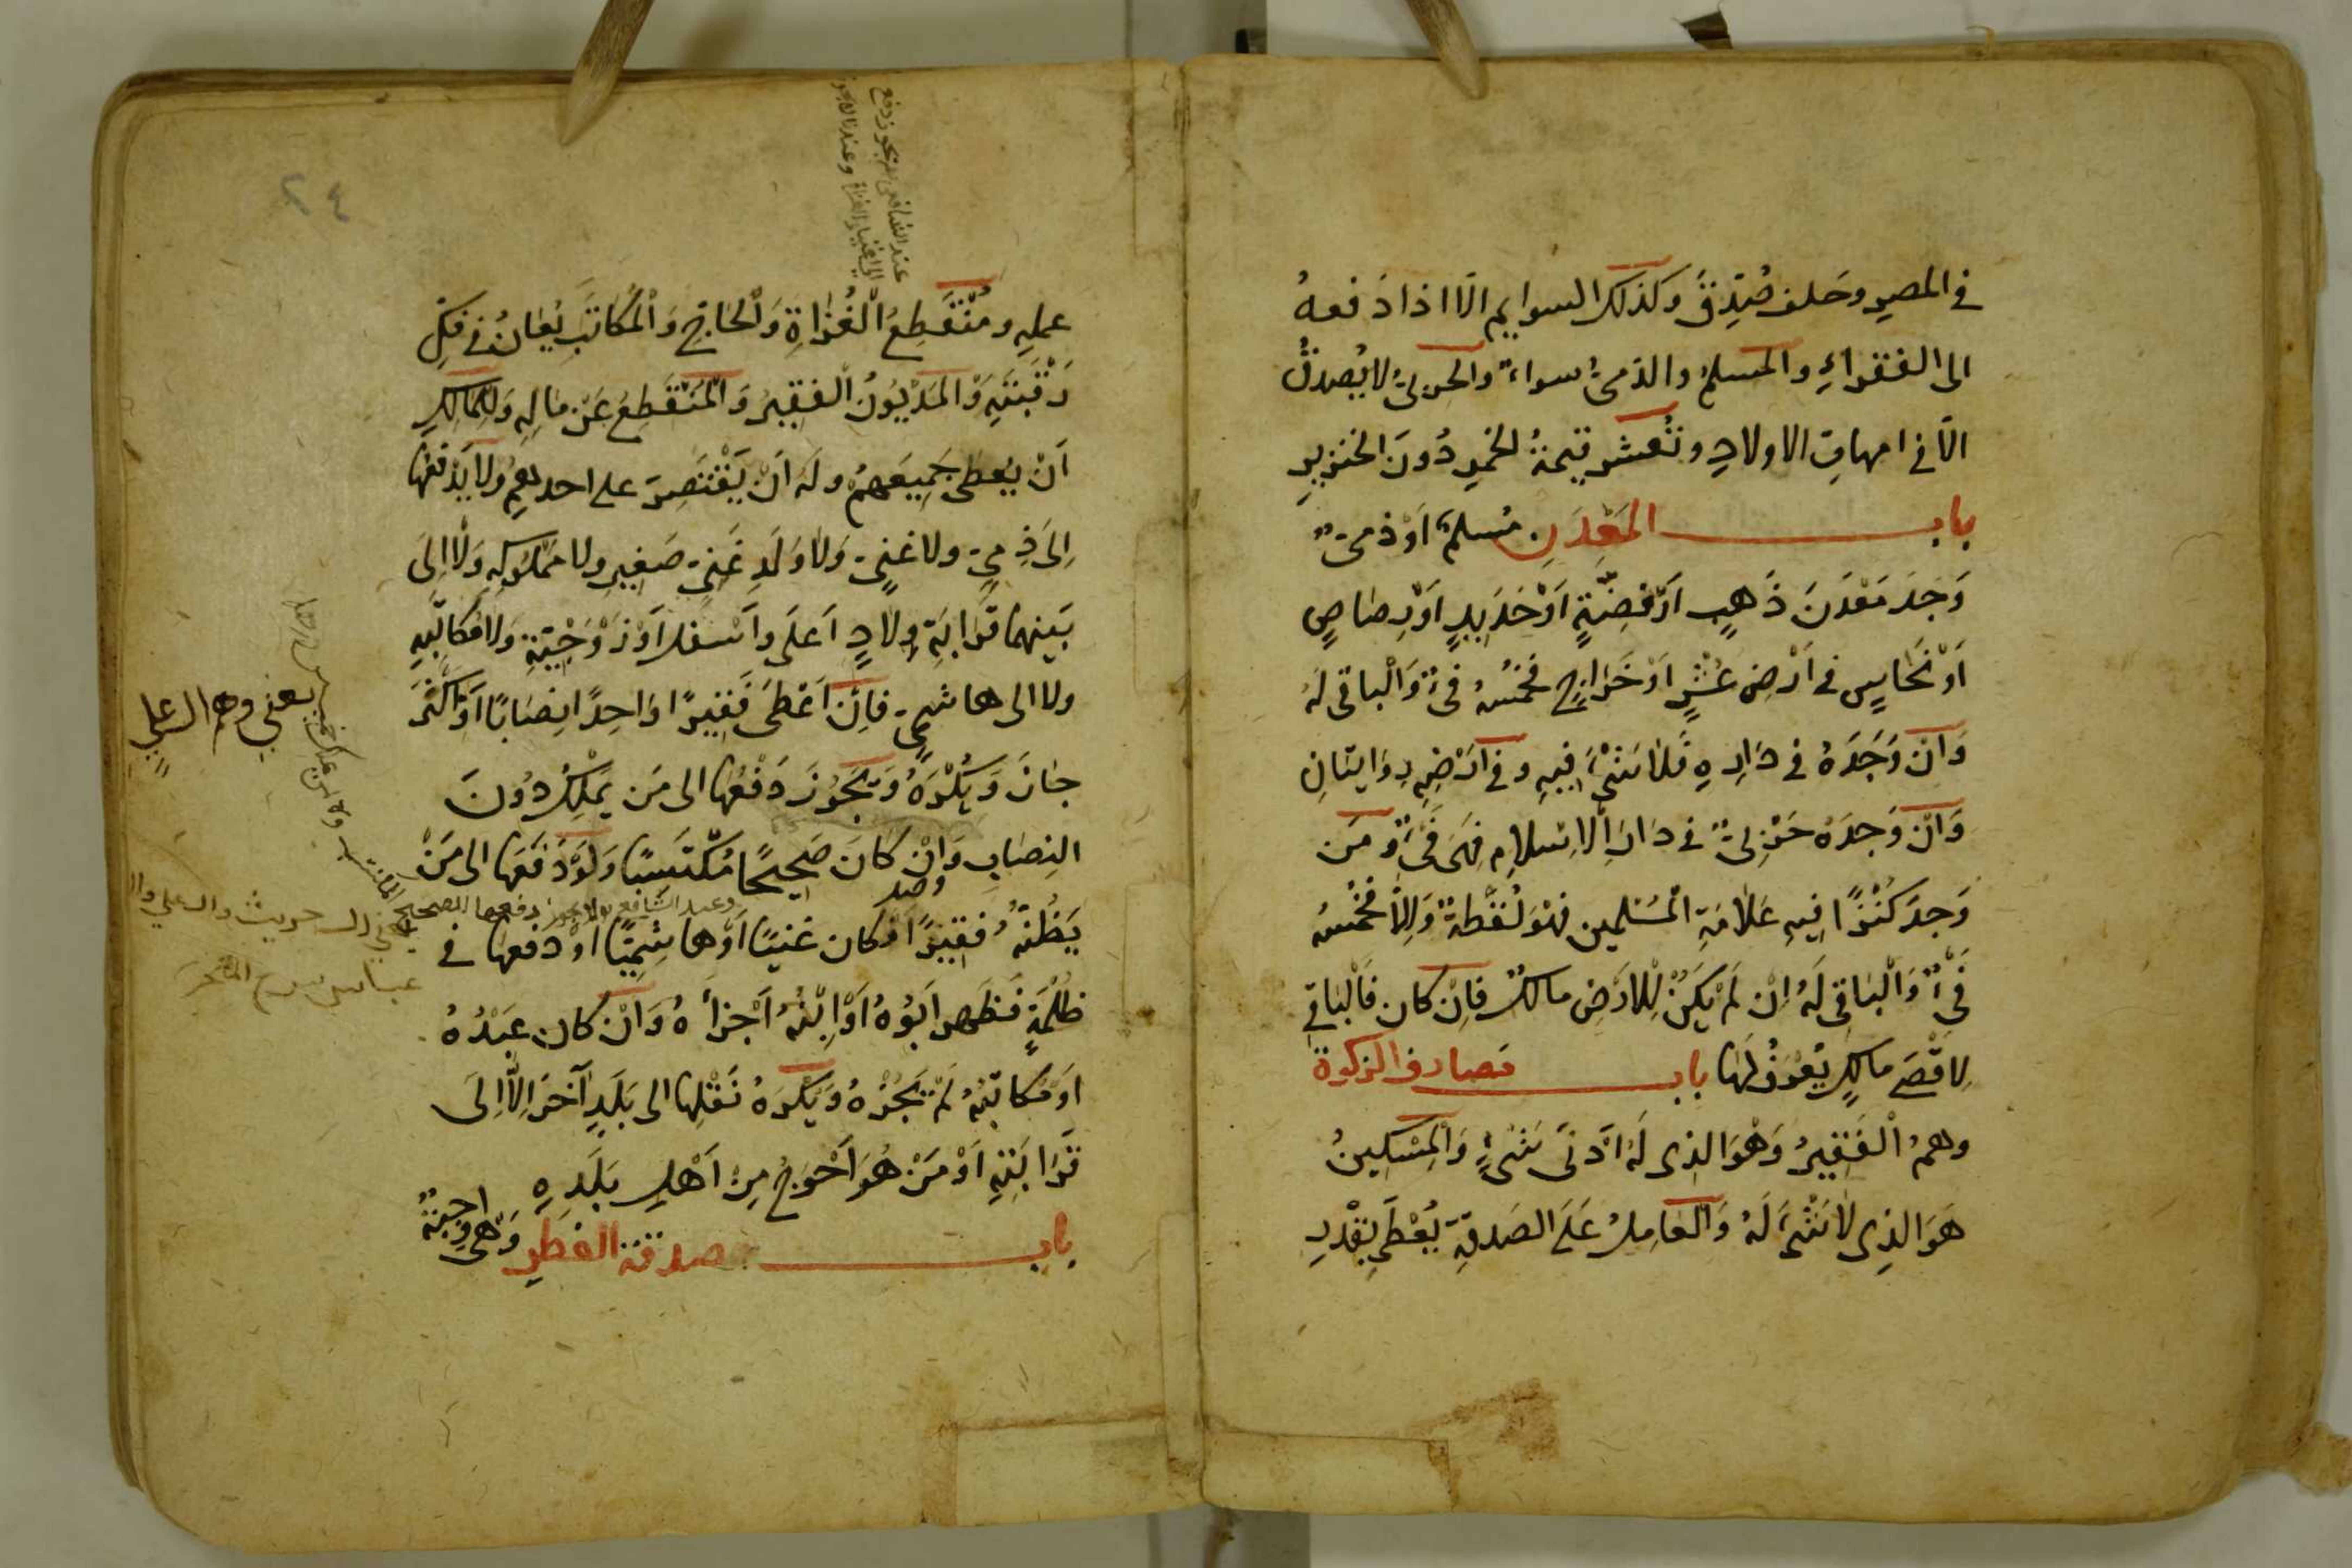 في المصر وحلف صُدِّقَ وكذلك السوايم الّا اذا دَفعهُ
الى الفقراءِ والمسلمُ والذمىُّ سواءٌ والحربىُّ لا يُصدقُ
الّا في امهاتِ الاولادِ وتُعشر قيمةُ الخمرِ دُونَ الخنزيرِ
باب المَعْدِنِ مُسلمٌ اَوْ ذمىٌّ
وَجَدَ مَعْدَنَ ذَهبٍ اَوْ فِضّةٍ اَوْ حَدِيدٍ اَوْ رِصاصٍ
اَوْ نُحَاسٍ في اَرْضِ عُشْرٍ اَوْ خَرَاجٍ فخمسُهُ فىْءٌ وَالْباقى لهُ
وَاِنْ وَجَدَهُ في دَارِهِ فَلا شَىْءَ فيهِ وفي اَرْضِهِ رِوَايتانِ
وَاِنْ وَجدَهُ حَرْبىٌّ في دَارِ الْاِسلامِ فهىَ فَىْءٌ ومَن
وَجدَ كَنْزًا فيهِ عَلامَةِ الْمُسْلمين فهُوَ لُقَطةٌ وَاِلّا فخُمْسُهُ
فَىْءٌ وَالْباقى لَهُ اِنْ لَمْ يَكُنْ لِلاَرْضِ مالكٌ فاِنْ كان فَالْباقي
لِاَقْصَى مالكٍ يُعْرَفُ لَها باب مَصارف الزكوة
وهمُ الْفَقيرُ وَهْوَ الذى لَهُ اَدْنَى شَىْءٍ وَالْمِسْكينُ
هَوَ الذِى لا شَىْءَ لَهُ وَالْعَامِلُ عَلَى الصَدقةِ يُعْطَى بقْدرِ
٢٤
عند الشافعى يجوز دفع
الى اغنياء الغزاة وعندنا لا يجوز
عملِهِ ومُنْقَطِعُ الْغُزَاةِ وَالْحَاجِّ وَالْمُكَاتَبَ يُعَانُ في فَكِّ
رَقْبَتِهِ وَالمَدْيُونُ الْفقيرُ وَالْمُنْقَطِعُ عَنْ مَالِهِ وَلِلمَالِكِ
اَنْ يُعطى جَمِيعَهمْ ولهُ اَنْ يَقْتَصِرَ على احدهِم ولا يَدْفَعُها
اِلَى ذِمىٍّ ولا غنىٍّ وَلا وَلَدِ غَنِىٍّ صَغيرٍ ولا مَمْلُوكِهِ وَلا اِلَى
بَينهما قَرَابَةِ وِلادٍ اَعلَى واَسْفلَ اَوْ زَوْجِيّةٍ ولا مُكاتَبِهِ
ولا الى هاشمىٍّ فاِنْ اَعْطَى فَقيرًا وَاحِدًا نِصَابًا اَوْ اَكْثَرَ
جَازَ وَيُكْرَهُ وَيَجُوزَ دَفْعُها الى مَن يَمْلِكُ دُونَ
النِصَابِ وَاِنْ كانَ صَحِيحًا مُكْتَسِبًا وَلَوْ دَفَعَها الى مَنْ
وعند الشافعى لا يجوز دفعها الصحيح
يَظُنّهُ فقيرًا وكان غنيًا اَوْ هاشِمِيًّا اَوْ دفعها في
ظُلْمَةٍ فَظهر اَبُوْهُ اَوْ اِبْنُهُ اَجْزأَهُ وَاِنْ كان عَبْدُهُ
اَوْ مُكاتَبُهُ لَمْ يَجُزْهُ وَيُكْرَهُ نَقْلها الى بَلَدٍ آخَرَ اِلَّا اِلَى
قَرَابَتِهِ اَوْ مَنْ هُوَ اَحْوَجُ مِنْ اَهْلِ بَلَدِهِ
باب صدقة الفطرِ وَهى واجبةٌ
يعنى وهم ال على